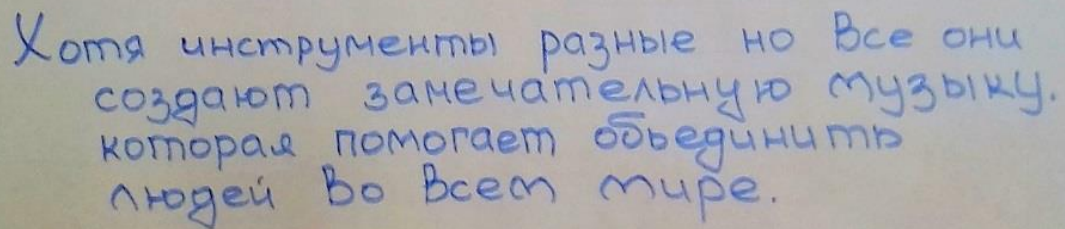 Хотя инструменты разные но Все они
создают замечательную музыку.
которая помогает обьединить
людей Во Всем мире.